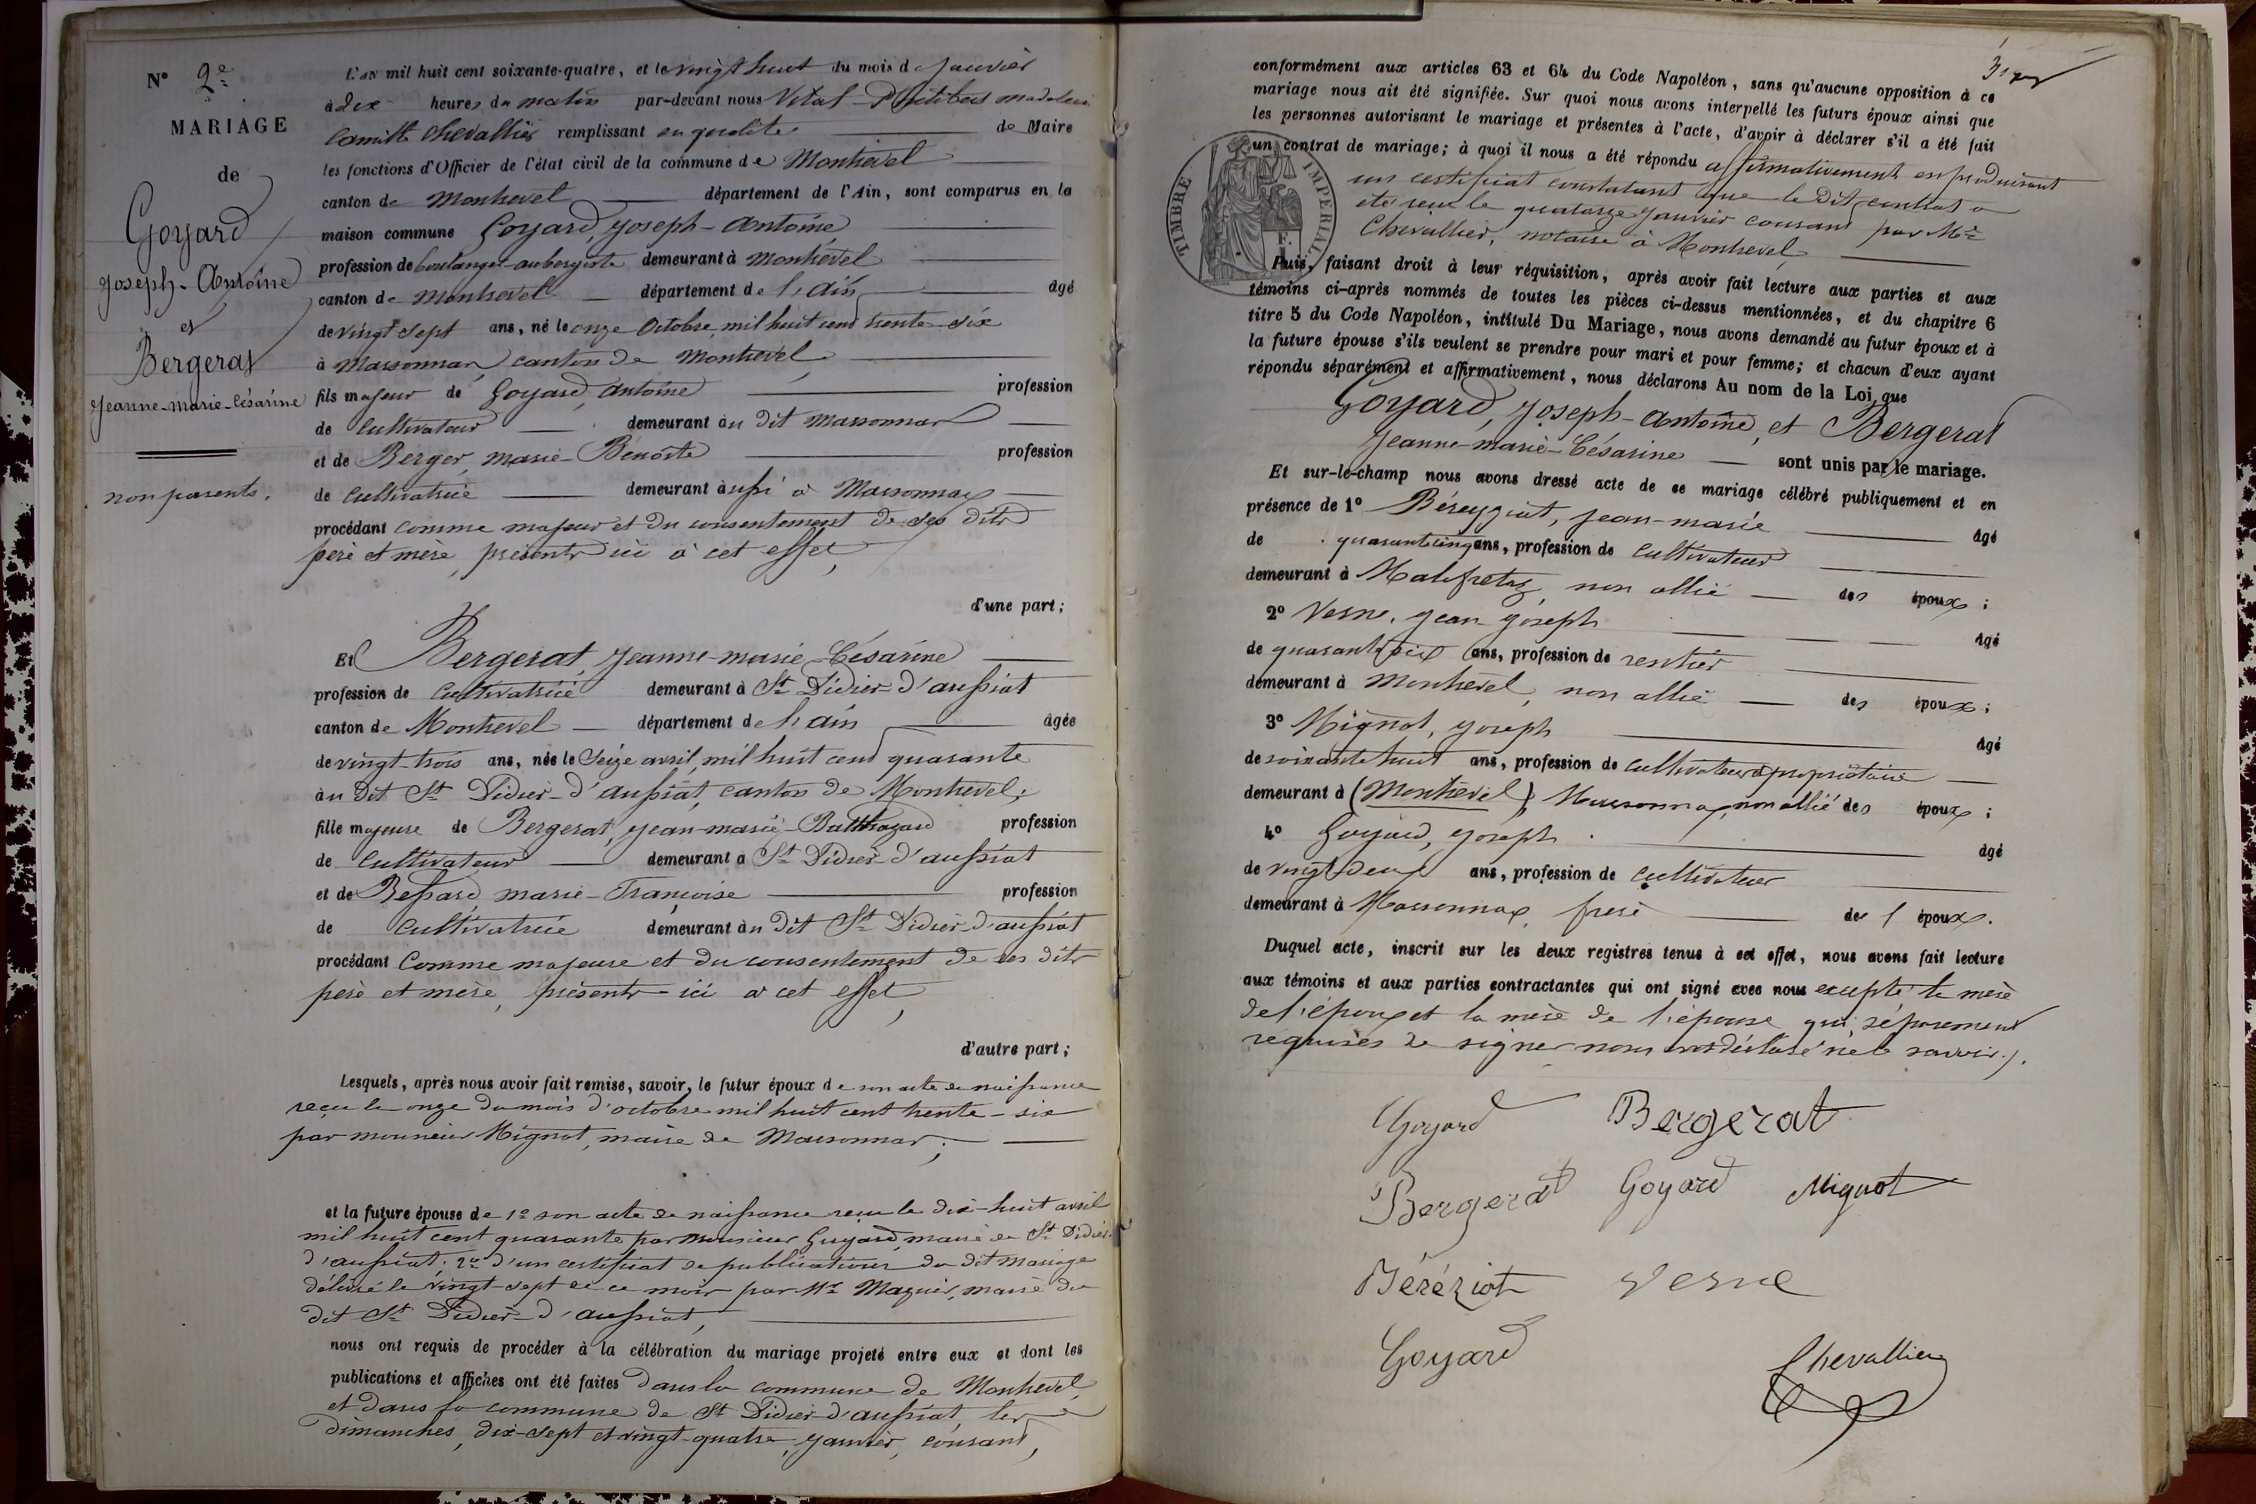 N° 2e
MARIAGE
de
Goyard
Joseph-Antoine
et
Bergerat
Jeanne-marie-Césarine
non parents.
L'an mil huit cent soixante-quatre, et le vingt huit du mois de Janvier
à dix heures du matin par-devant nous Vital madeleine
Camille Chevallier remplissant en qualité de Maire
les fonctions d'Officier de l'état civil de la commune de Montrevel
canton de Montrevel département de l'Ain, sont comparus en la
maison commune Goyard, Joseph-Antoine
profession de boulanger-aubergiste demeurant à Montrevel
canton de Montrevel département de l'ain âgé
de vingt sept ans, né le onze Octobre mil huit cent trente-six
à Marsonnax canton de Montrevel
fils majeur de Goyard, Antoine profession
de Cultivateur demeurant au dit Marsonnax
et de Berger, marie-Benoîte profession
de Cultivatrice demeurant aussi à Marsonnax
procédant comme majeur et du consentement de ses dits
père et mère, présents ici à cet effet,
d'une part;
Et Bergerat Jeanne-marie-Césarine
profession de Cultivatrice demeurant à St Didier-d'aussiat
canton de Montrevel département de l'ain âgée
de vingt-trois ans, née le Seize avril mil huit cent quarante
au dit St Didier-d'aussiat, canton de Montrevel,
fille majeure de Bergerat, Jean-marie-Balthazard profession
de Cultivateur demeurant à St Didier-d'aussiat
et de Bessard marie-Françoise profession
de Cultivatrice demeurant au dit St Didier-d'aussiat
procédant Comme majeure et du consentement de ses dits
père et mère, présents ici à cet effet,
d'autre part;
Lesquels, après nous avoir fait remise, savoir, le futur époux de son acte de naissance
reçu le onze du mois d'octobre mil huit cent trente-six
par monsieur Mignot, maire de Marsonnax;
et la future épouse de 1° son acte de naissance reçu le dix-huit avril
mil huit cent quarante par monsieur Guyard, maire de St Didier
d'aussiat. 2° d'un certificat de publications du dit mariage
délivré le vingt-sept de ce mois par Mr Mazuir, maire du
dit St Didier-d'aussiat,
nous ont requis de procéder à la célébration du mariage projeté entre eux et dont les
publications et affiches ont été faites dans la commune de Montrevel,
et dans la commune de St Didier-d'aussiat, les
dimanches, dix-sept et vingt-quatre, Janvier, courant,
conformément aux articles 63 et 64 du Code Napoléon, sans qu'aucune opposition à ce
mariage nous ait été signifiée. Sur quoi nous avons interpellé les futurs époux ainsi que
les personnes autorisant le mariage et présentes à l'acte, d'avoir à déclarer s'il a été fait
un contrat de mariage; à quoi il nous a été répondu affirmativement en produisant
un certificat constatant que le dit contrat a
été reçu le quatorze Janvier courant par Me
Chevallier, notaire à Montrevel
TIMBRE IMPERIAL
Puis, faisant droit à leur réquisition, après avoir fait lecture aux parties et aux
témoins ci-après nommés de toutes les pièces ci-dessus mentionnées, et du chapitre 6
titre 5 du Code Napoléon, intitulé Du Mariage, nous avons demandé au futur époux et à
la future épouse s'ils veulent se prendre pour mari et pour femme; et chacun d'eux ayant
répondu séparément et affirmativement, nous déclarons Au nom de la Loi, que
Goyard, Joseph-Antoine, et Bergerat
Jeanne-marie-Césarine sont unis par le mariage.
Et sur-le-champ nous avons dressé acte de ce mariage célébré publiquement et en
présence de 1° Béreyziat, Jean-marie âgé
de quarante cinq ans, profession de Cultivateur
demeurant à Malafretaz, non allié des époux;
2° Verne, Jean Joseph âgé
de quarante six ans, profession de rentier
demeurant à Montrevel, non allié des époux;
3° Mignot, Joseph âgé
de soixante huit ans, profession de Cultivateur propriétaire
demeurant à (Montrevel) Marsonnax, non allié des époux;
4° Goyard, Joseph âgé
de vingt deux ans, profession de Cultivateur
demeurant à Marsonnax, frère de l'époux.
Duquel acte, inscrit sur les deux registres tenus à cet effet, nous avons fait lecture
aux témoins et aux parties contractantes qui ont signé avec nous excepté la mère
de l'époux et la mère de l'épouse qui, séparement
requises de signer nous ont déclaré ne le savoir.
Goyard Bergerat
Bergerat Goyard Mignot
Béréziat Verne
Goyard
Chevallier